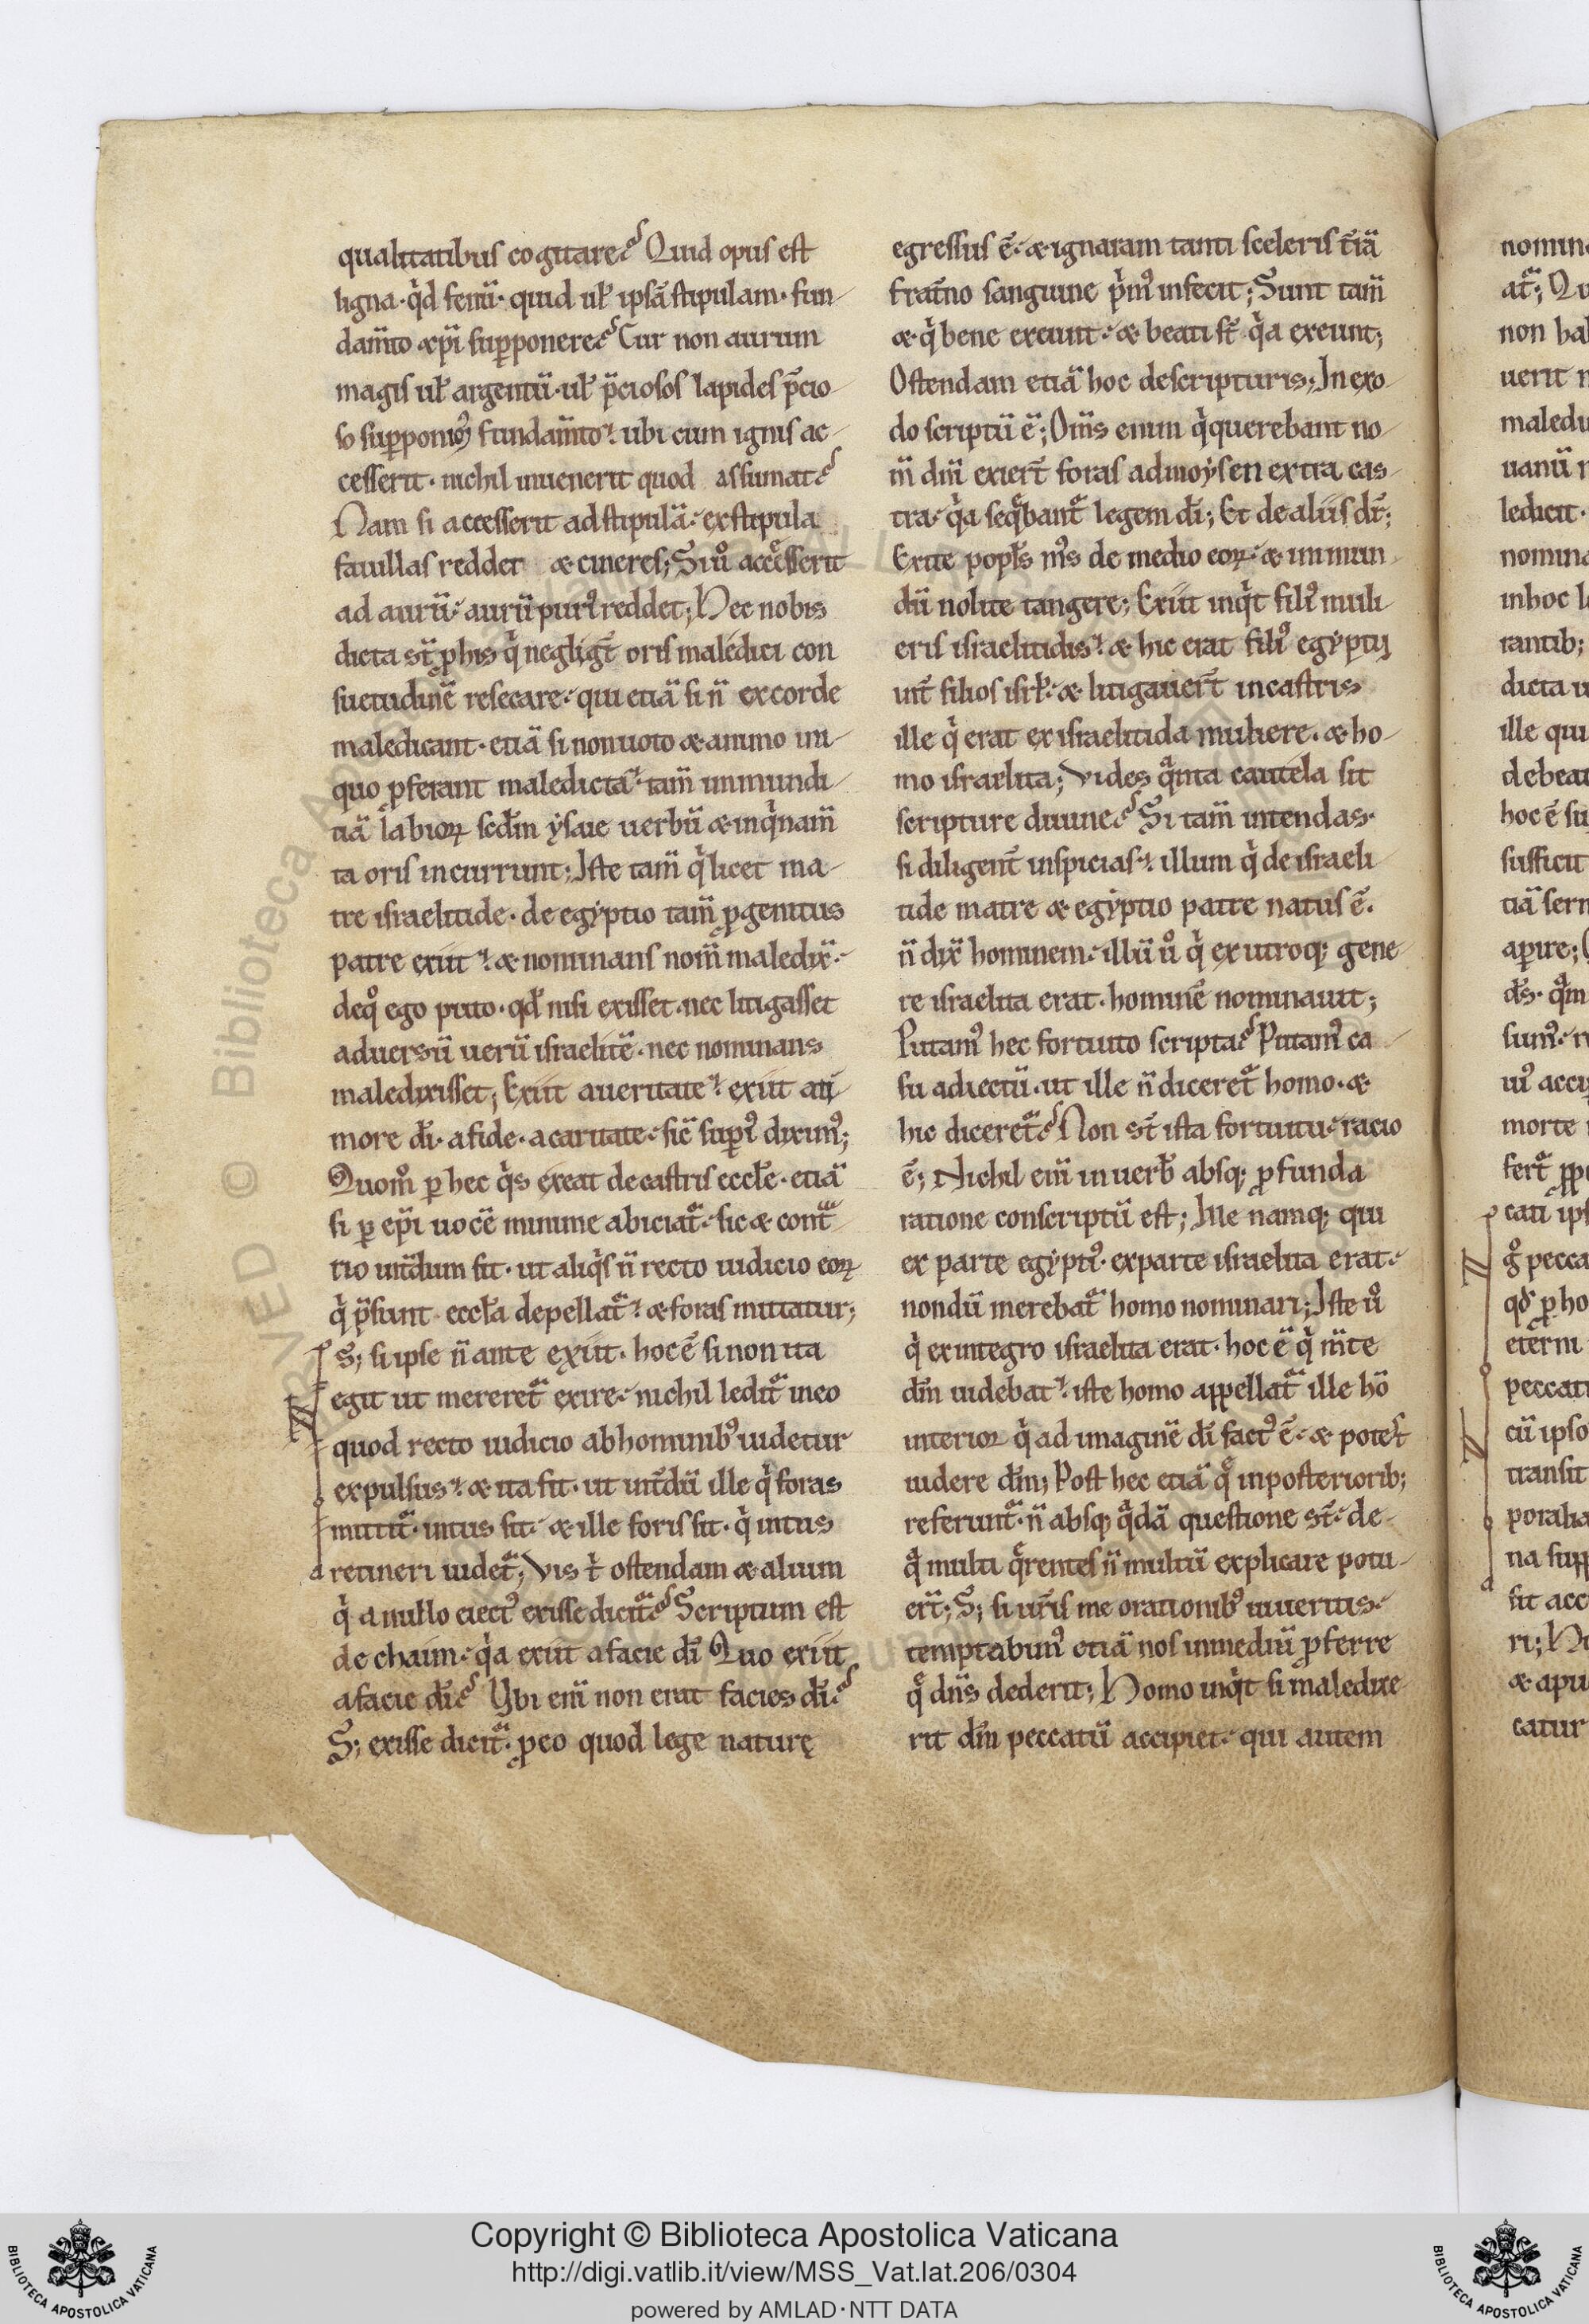 qualitatibus cogitare? Quid opus est
ligna· q̇d fenū· quid ul̄ ipsā stipulam· fun-
dam̄to xp̄i supponere? Cur non aurum
magis ul̄ argentū· ul̄ p̄ciosos lapides p̄cio-
so supponim⁹ fundam̄to? ubi cum ignis ac-
cesserit· nichil inuenerit quod assumat?
Nam si accesserit ad stipulā· ex stipula
fauillas reddet & cineres; Si u̾ accesserit
ad aurū· aurū puri⁹ reddet; Hec nobis
dicta st̄ p̱ his q̇ negligt̄ oris maledici con
suetudinē resecare· qui etiā si n̄ ex corde
maledicant· etiā si non uoto & animo ini-
quo p̱ferant maledicta· tam̄ inmundi-
tiā labioꝝ scd̄m ysaie uerbū & inq̇nam̄
ta oris incurrunt; Iste tam̄ q̇ licet ma-
tre israelitide· de egyptio tam̄ p̱genitus
patre exiit· & nominans nom̄ maledix̄·
de q̊ ego puto· qd̄ nisi exisset· nec litigasset
aduersū uerū israelitē· nec nominans
maledixisset; Exiit a ueritate· exiit a ti-
more dī· a fide· a caritate· sic̄ superi⁹ diximꝰ;
Quom̊ p hec q̇s exeat de castris eccl̄e· etiā
si p ep̄i uocē minime abiciat᷑· sic & cont̄ᵃ
rio int̄dum fit· ut aliq̇s n̄ recto iudicio eoꝝ
q̇ p̄sunt eccl̄a depellat᷑· & foras mittatur;
S; si ipse n̄ ante exiit· hoc ē si non ita
egit ut mereret᷑ exire· nichil ledit᷑ in eo
quod recto iudicio ab hominibꝰ uidetur
expulsus· & ita fit· ut int̄dū ille q̇ foras
mittit᷑· intus sit· & ille foris sit· q̇ intus
retineri uidet᷑; Vis t̄ ostendam & alium
q̇ a nullo eiectꝰ exisse dicit᷑? Scriptum est
de chaim· q̇a exiit a facie dī Quo exiit
a facie dī? Vbi eni̅ non erat facies dī?
S; exisse dicit᷑· p̱ eo quod lege naturę
egressus ē· & ignaram tanti sceleris t̄rā
frat̄no sanguine ṗmꝰ infecit; Sunt tam̄
& q̇ bene exeunt· & beati st̄ q̇a exeunt;
Ostendam etiā hoc de scripturis; In exo-
do scriptū ē; Om̄s enim q̇ querebant no-
m̄ dn̄i exiert̄ foras ad moysen extra cas-
tra· q̇a seq̄bant᷑ legem dī; Et de aliis dr̄;
Exite popl̄s m̄s de medio eoꝝ· & inmun-
dū nolite tangere; Exiit inq̇t filiꝰ muli
eris israelitidis· & hic erat filiꝰ egyptij
int̄ filios isrl̄· & litigauert̄ in castris
ille q̇ erat ex israelitida muliere· & ho-
mo israelita; Vides q̄nta cautela sit
scripture diuine? Si tam̄ intendas·
si diligent̄ inspicias· illum q̇ de israeli
tide matre & egyptio patre natus ē·
n̄ dix̄ hominem· illū u̾ q̇ ex utroq; gene-
re israelita erat· hominē nominauit;
Putamꝰ hec fortuito scripta? Putamꝰ ca-
su adiectū· ut ille n̄ diceret᷑ homo· &
hic diceret᷑? Non st̄ ista fortuitu· racio
ē; Nichil eni̅ in uerb̄ absq; p̱funda
ratione conscriptū est; Ille namq; qui
ex parte egyptiꝰ· ex parte israelita erat·
nondū merebat᷑ homo nominari; Iste u̾
q̇ ex integro israelita erat· hoc ē q̇ m̄te
dm̄ uidebat· iste homo appellat᷑ ille hō
interior q̇ ad imaginē dī factꝰ ē· & potest
uidere dm̄; Post hec etiā q̄ in posteriorib;
referunt᷑· n̄ absq; q̄dā questione st̄· de
q̄ multi q̄rentes n̄ multū explicare potu-
ert̄; S; si ur̄is me orationibꝰ iuueritis·
temptabimꝰ etiā nos in mediū p̱ferre
q̄ dn̄s dederit; Homo inq̇t si maledixe
rit dm̄ peccatū accipiet· qui autem
Copyright © Biblioteca Apostolica Vaticana
http://digi.vatlib.it/view/MSS_Vat.lat.206/0304
powered by AMLAD·NTT DATA